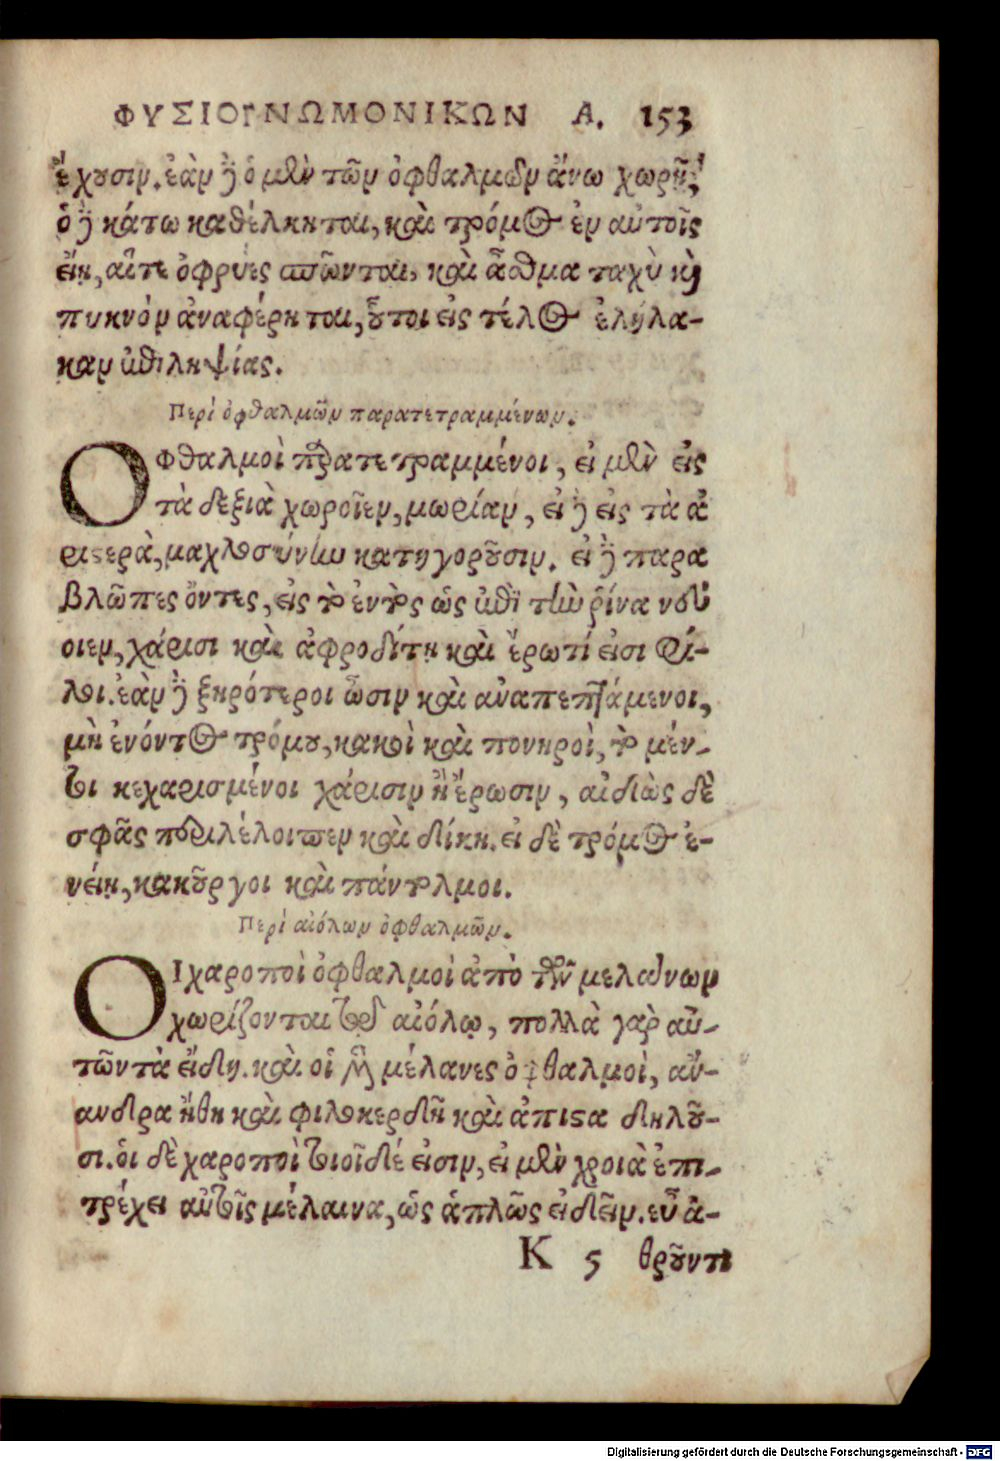 ΦΥΣΙΟΓΝΩΜΟΝΙΚΩΝ Α. 153
ἔχουσιν. ἐὰν δὲ ὁ μὲν τῶν ὀφθαλμῶν ἄνω χωρῇ,
ὁ δὲ κάτω καθέλκηται, καὶ τρόμος ἐν αὐτοῖς
ἐίη, αἵτε ὀφρύες σπῶνται, καὶ ἆσθμα ταχὺ καὶ
πυκνὸν ἀναφέρηται, οὗτοι εἰς τέλος ἐληλα-
καν ἐπιληψίας.
Περὶ ὀφθαλμῶν παρατετραμμένων.
ΟΦθαλμοὶ παρατετραμμένοι, εἰ μὲν εἰς
τὰ δεξιὰ χωροῖεν, μωρίαν, εἰ δὲ εἰς τὰ ἀ
ριστερὰ, μαχλοσύνην κατηγοροῦσιν. εἰ δὲ παρα
βλῶπες ὄντες, εἰς τὸ ἐντὸς ὡς ἐπὶ τὴν ῥίνα νεύ
οιεν, χάρισι καὶ ἀφροδίτη καὶ ἔρωτί εἰσι φί-
λοι. ἐὰν δὲ ξηρότεροι ὦσιν καὶ ἀναπεπταμένοι,
μὴ ἐνόντος τρόμου, κακοὶ καὶ πονηροὶ, τὸ μέν-
τοι κεχαρισμένοι χάρισιν ἢ ἔρωσιν, αἰδὼς δὲ
σφᾶς προλέλοιπεν καὶ δίκη. εἰ δὲ τρόμος ἐ-
νείη, κακοῦργοι καὶ πάντολμοι.
Περὶ αἰόλων ὀφθαλμῶν.
ΟΙ χαροποὶ ὀφθαλμοὶ ἀπὸ τῶν μελάνων
χωρίζονται τῷ αἰόλῳ, πολλὰ γὰρ αὐ-
τῶν τὰ εἴδη. καὶ οἱ μὲν μέλανες ὀφθαλμοὶ, ἄν-
ανδρα ἤθη καὶ φιλοκερδῆ καὶ ἄπιστα δηλοῦ-
σι. οἱ δὲ χαροποὶ τοιοῖδέ εἰσιν, εἰ μὲν χροιὰ ἐπι-
τρέχει αὐτοῖς μέλαινα, ὡς ἁπλῶς εἰδεῖν. εὖ ἀ-
Κ 5 θροῦντι
Digitalisierung gefördert durch die Deutsche Forschungsgemeinschaft - DFG